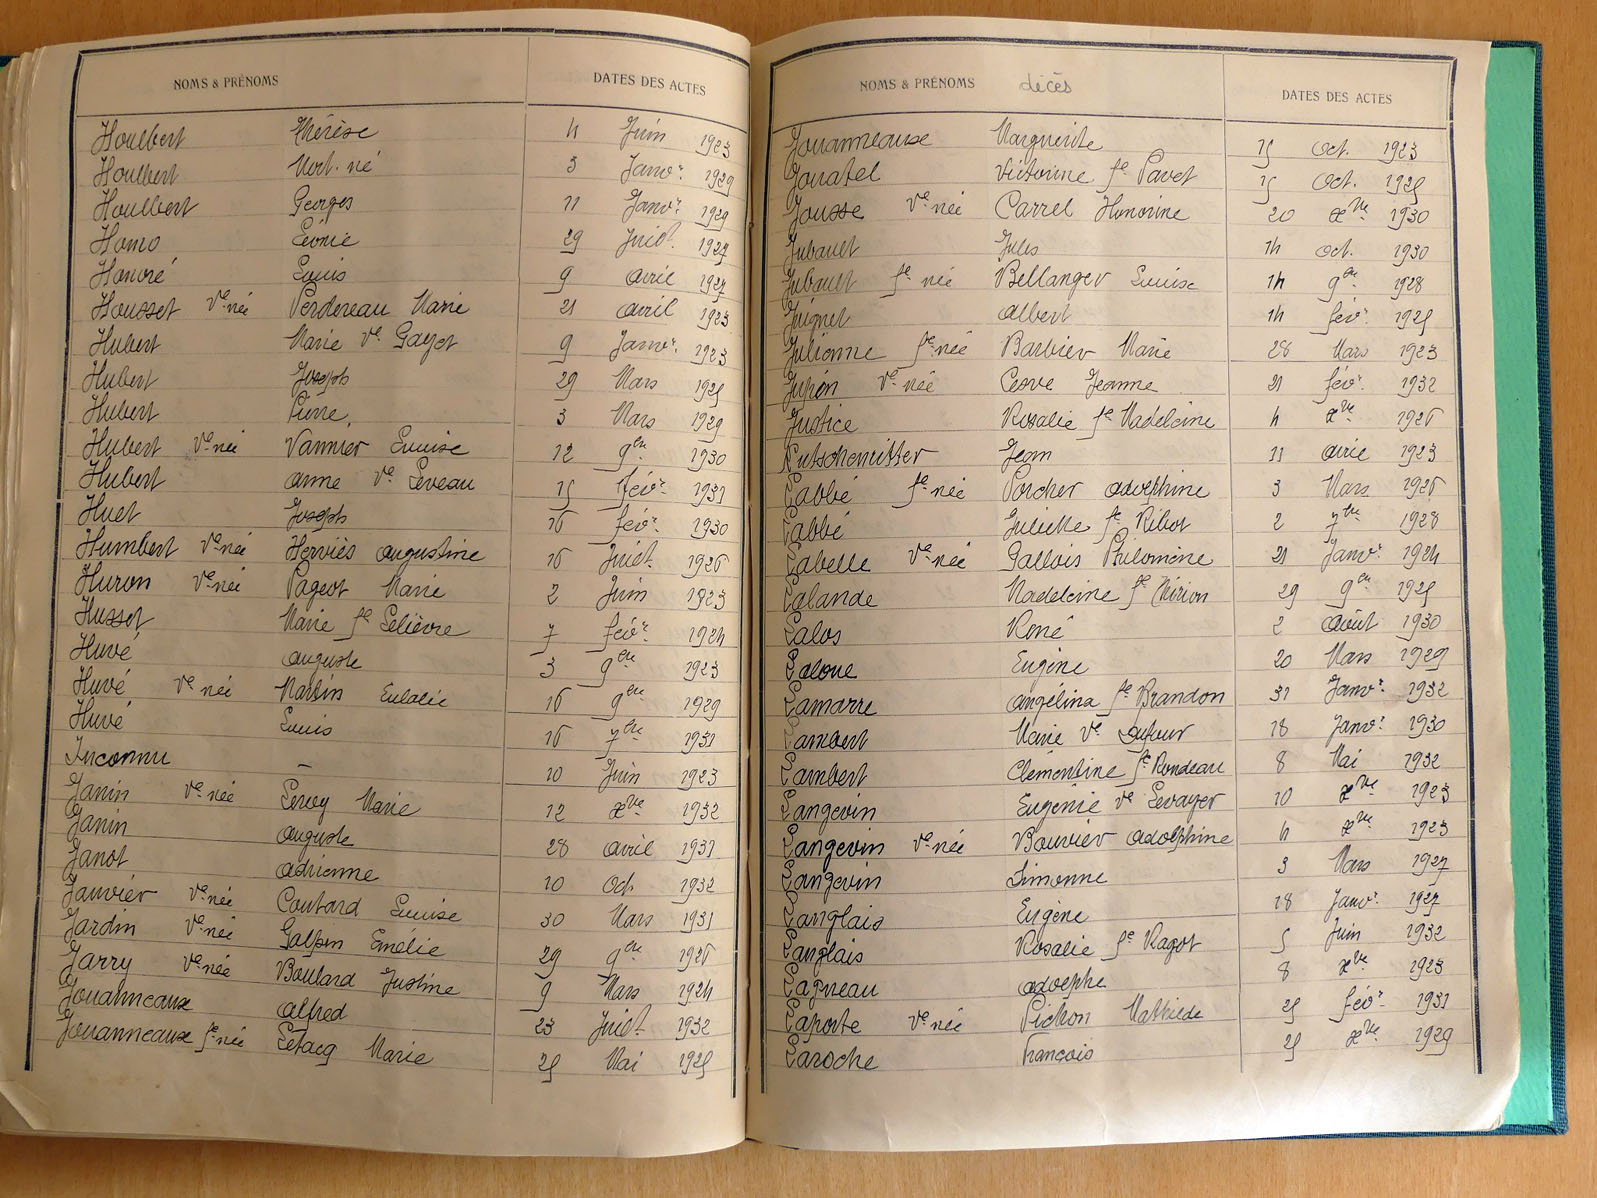 NOMS & PRÉNOMS DATES DES ACTES
Houlbert Thérèse 4 Juin 1923
Houlbert Mort-né 3 Janvr. 1929
Houlbert Georges 11 Janvr. 1929
Homo Léonie 29 Juiet. 1927
Honoré Louis 9 avril 1927
Housset Ve née Perdereau Marie 21 avril 1923
Hubert Marie Ve Gayot 9 Janvr. 1923
Hubert Joseph 29 Mars 1925
Hubert Pierre 3 Mars 1929
Hubert Ve née Vannier Louise 12 9bre 1930
Hubert anne Ve Leveau 15 févr. 1931
Huet Joseph 16 févr. 1930
Humbert Ve née Herviès augustine 16 Juiet. 1926
Huron Ve née Pageot Marie 2 Juin 1923
Husset Marie fe Lelièvre 7 févr. 1924
Huvé auguste 3 9bre 1923
Huvé Ve née Martin Eulalie 16 9bre 1929
Huvé Louis 16 7bre 1931
Inconnu – 10 Juin 1923
Janin Ve née Leroy Marie 12 xbre 1932
Janin auguste 28 avril 1931
Janot adrienne 10 Oct. 1932
Janvier Ve née Coutard Louise 30 Mars 1931
Jardin Ve née Galpin Emélie 29 9bre 1926
Jarry Ve née Boulard Justine 9 Mars 1924
Jouanneaux alfred 23 Juiet. 1932
Jouanneaux fe née Letacq Marie 25 Mai 1925
NOMS & PRÉNOMS décès DATES DES ACTES
Jouanneaux Marguerite 15 Oct. 1923
Jouatel Victorine fe Pavet 15 Oct. 1925
Jousse Ve née Carrel Honorine 20 xbre 1930
Jubault Jules 14 oct. 1930
Jubault fe née Bellanger Louise 14 9bre 1928
Juignet albert 14 févr. 1925
Julienne fe née Barbier Marie 28 Mars 1923
Jupin Ve née Jeanne 21 févr. 1932
Justice Rosalie fe Madeleine 4 xbre 1926
Jean 11 avril 1923
Labbé fe née Porcher adolphine 3 Mars 1926
Labbé Juliette fe Ribot 2 7bre 1928
Labelle Ve née Gallois Philomène 21 Janvr. 1924
Lalande Madeleine fe 29 9bre 1925
Lalos René 2 août 1930
Laloue Eugène 20 Mars 1929
Lamarre angélina fe Brandon 31 Janvr. 1932
Lambert Marie Ve Dufour 18 Janvr. 1930
Lambert Clementine fe Rondeau 8 Mai 1932
Langevin Eugénie Ve Levayer 10 xbre 1923
Langevin Ve née Bouvier adolphine 4 xbre 1923
Langevin Simonne 3 Mars 1927
Langlais Eugène 18 Janvr. 1927
Langlais Rosalie fe Ragot 5 Juin 1932
Lagneau adolphe 8 xbre 1923
Laporte Ve née Pichon Mathilde 25 févr. 1931
Laroche François 25 xbre 1929